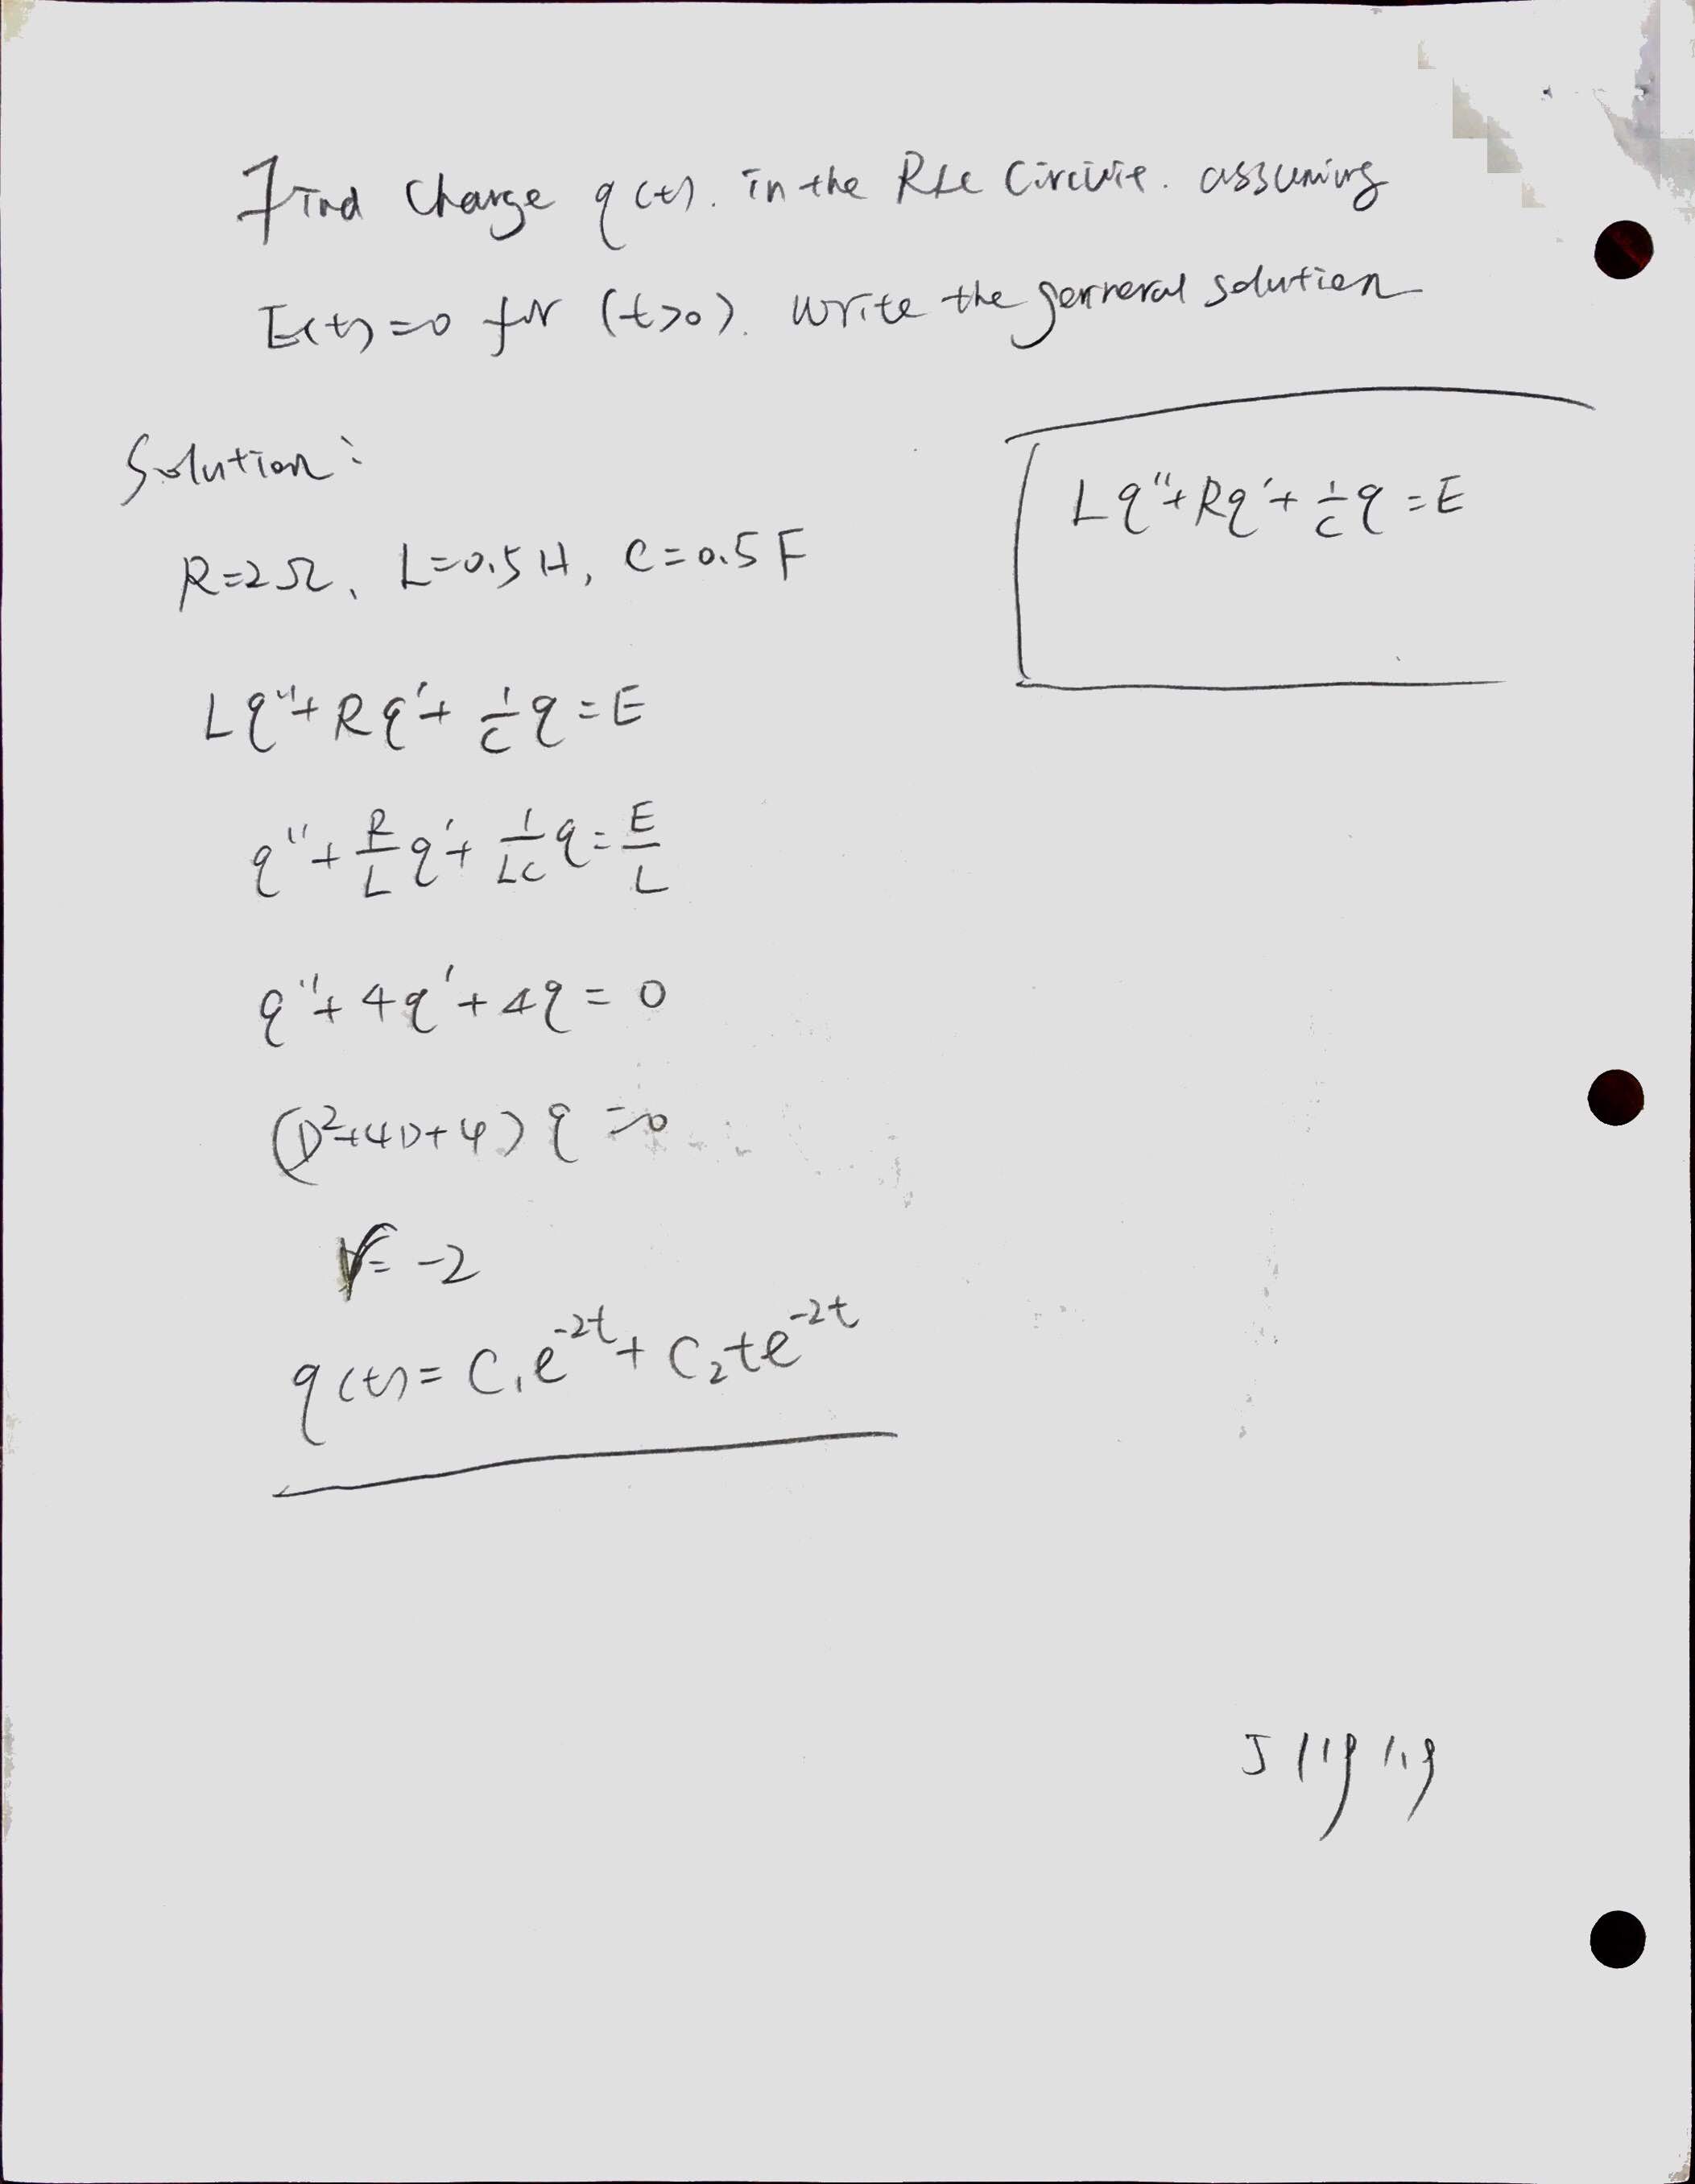 Find Charge q(t). in the RLC Circuit. assuming
E(t)=0 for (t>0). Write the genreral solution
Solution:
Lq''+Rq'+1/C q=E
R=2Ω, L=0.5H, C=0.5F
Lq''+Rq'+1/C q=E
q''+R/L q'+1/LC q=E/L
q''+4q'+4q=0
(D²+4D+4)q=0
r=-2
q(t)=C₁e⁻²ᵗ+C₂te⁻²ᵗ